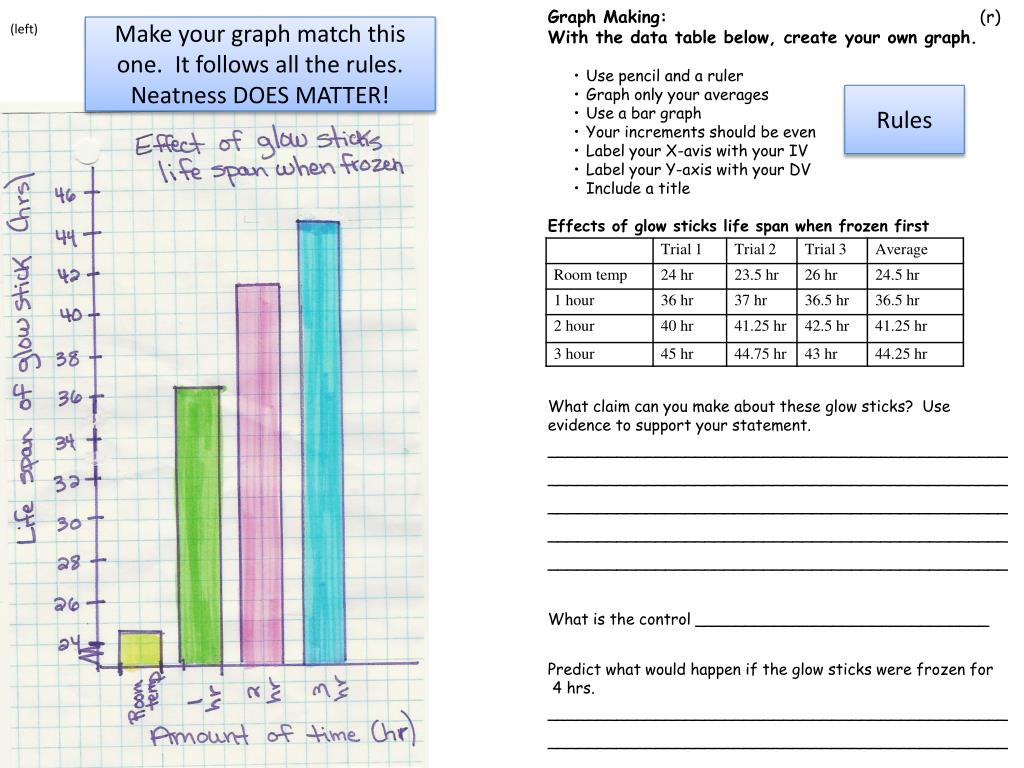 (left)
Make your graph match this
one. It follows all the rules.
Neatness DOES MATTER!
Effect of glow sticks
life span when frozen
Life span of glow stick (hrs)
46
44
42
40
38
36
34
32
30
28
26
24
Room
temp
1
hr
2
hr
3
hr
Amount of time (hr)
Graph Making: (r)
With the data table below, create your own graph.
• Use pencil and a ruler
• Graph only your averages
• Use a bar graph
• Your increments should be even
• Label your X-avis with your IV
• Label your Y-axis with your DV
• Include a title
Rules
Effects of glow sticks life span when frozen first
Trial 1 Trial 2 Trial 3 Average
Room temp 24 hr 23.5 hr 26 hr 24.5 hr
1 hour 36 hr 37 hr 36.5 hr 36.5 hr
2 hour 40 hr 41.25 hr 42.5 hr 41.25 hr
3 hour 45 hr 44.75 hr 43 hr 44.25 hr
What claim can you make about these glow sticks? Use
evidence to support your statement.
What is the control
Predict what would happen if the glow sticks were frozen for
4 hrs.